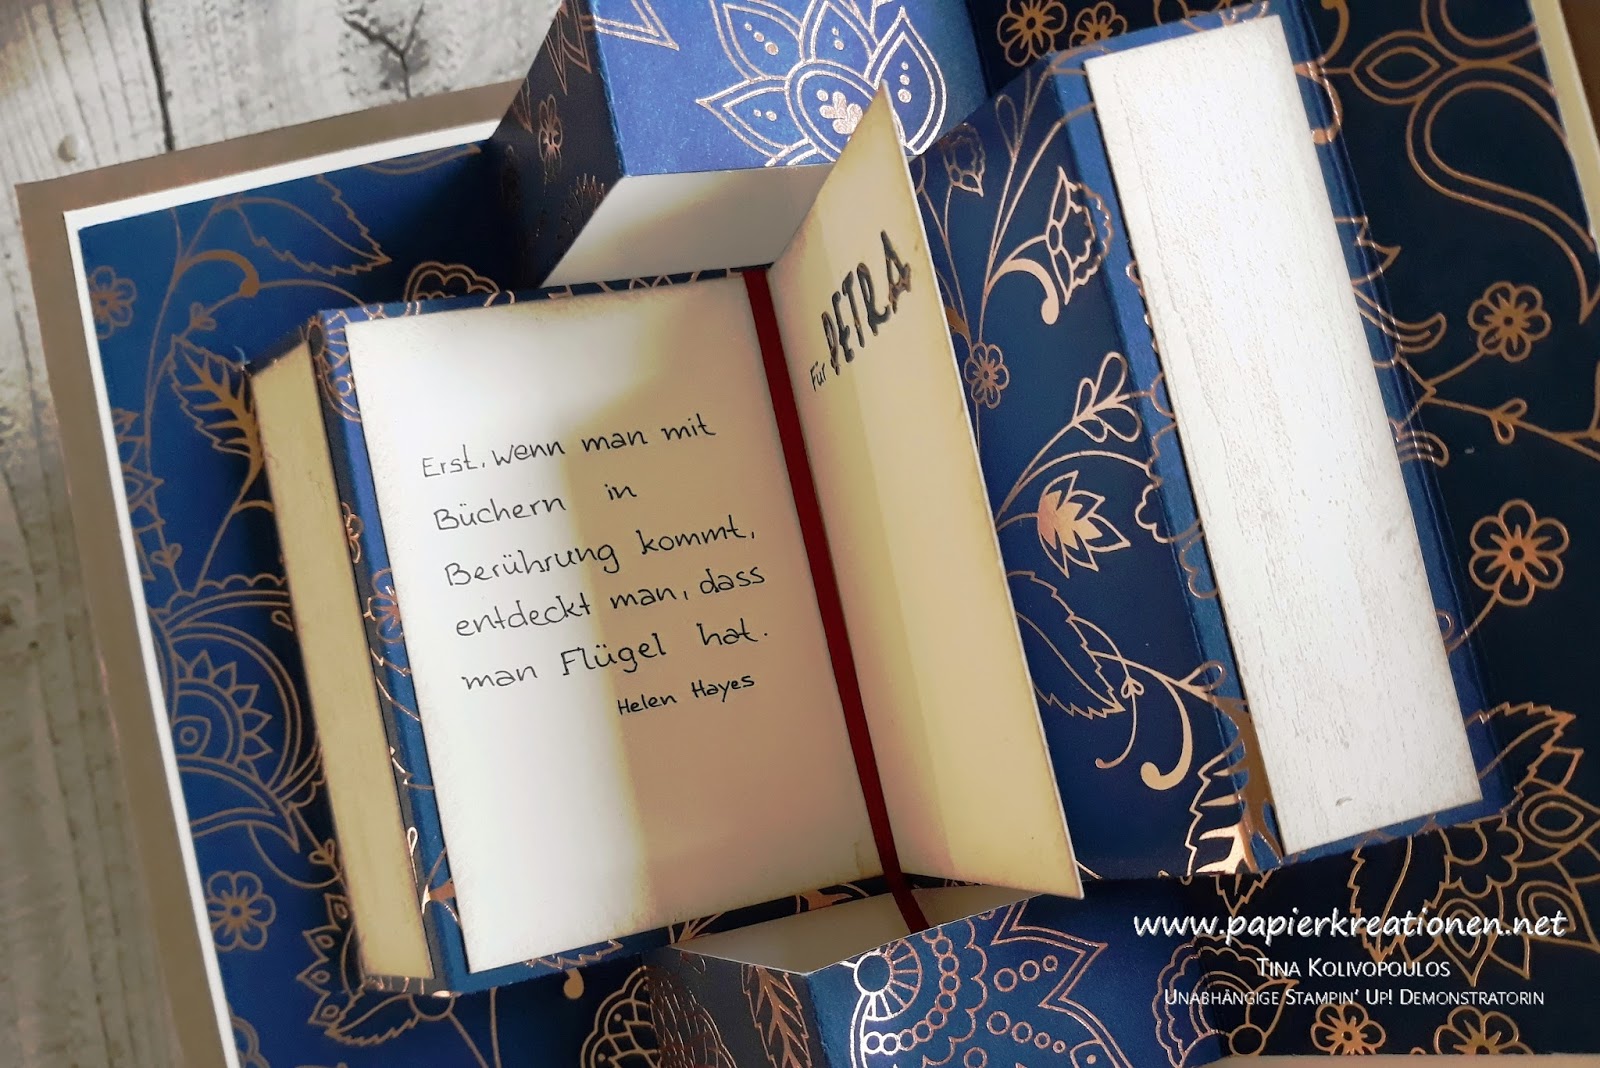 Erst, wenn man mit
Büchern in
Berührung kommt,
entdeckt man, dass
man Flügel hat.
Helen Hayes
...Für PETRA
www.papierkreationen.net
Tina Kolivopoulos
Unabhängige Stampin' Up! Demonstratorin